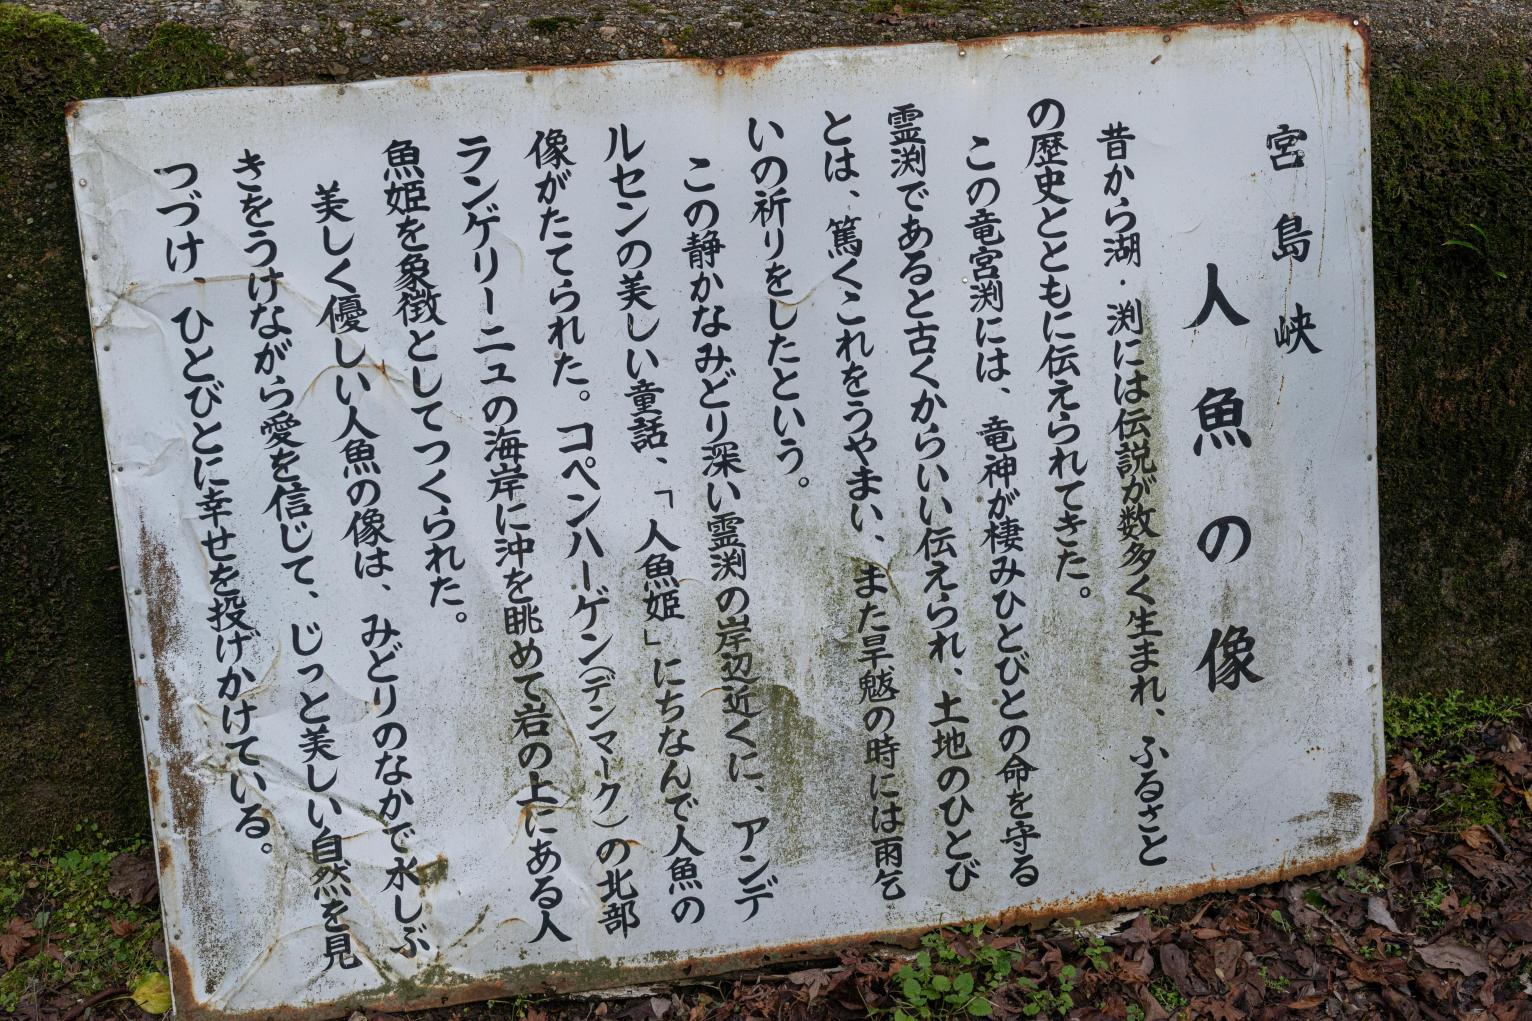 宮島峡
人魚の像
昔から湖・渕には伝説が数多く生まれ、ふるさと
の歴史とともに伝えられてきた。
この竜宮渕には、竜神が棲みひとびとの命を守る
霊渕であると古くからいい伝えられ、土地のひとび
とは、篤くこれをうやまい、また旱魃の時には雨乞
いの祈りをしたという。
この静かなみどり深い霊渕の岸辺近くに、アンデ
ルセンの美しい童話、「人魚姫」にちなんで人魚の
像がたてられた。コペンハーゲン(デンマーク)の北部
ランゲリーニュの海岸に沖を眺めて岩の上にある人
魚姫を象徴としてつくられた。
美しく優しい人魚の像は、みどりのなかで水しぶ
きをうけながら愛を信じて、じっと美しい自然を見
つづけ、ひとびとに幸せを投げかけている。